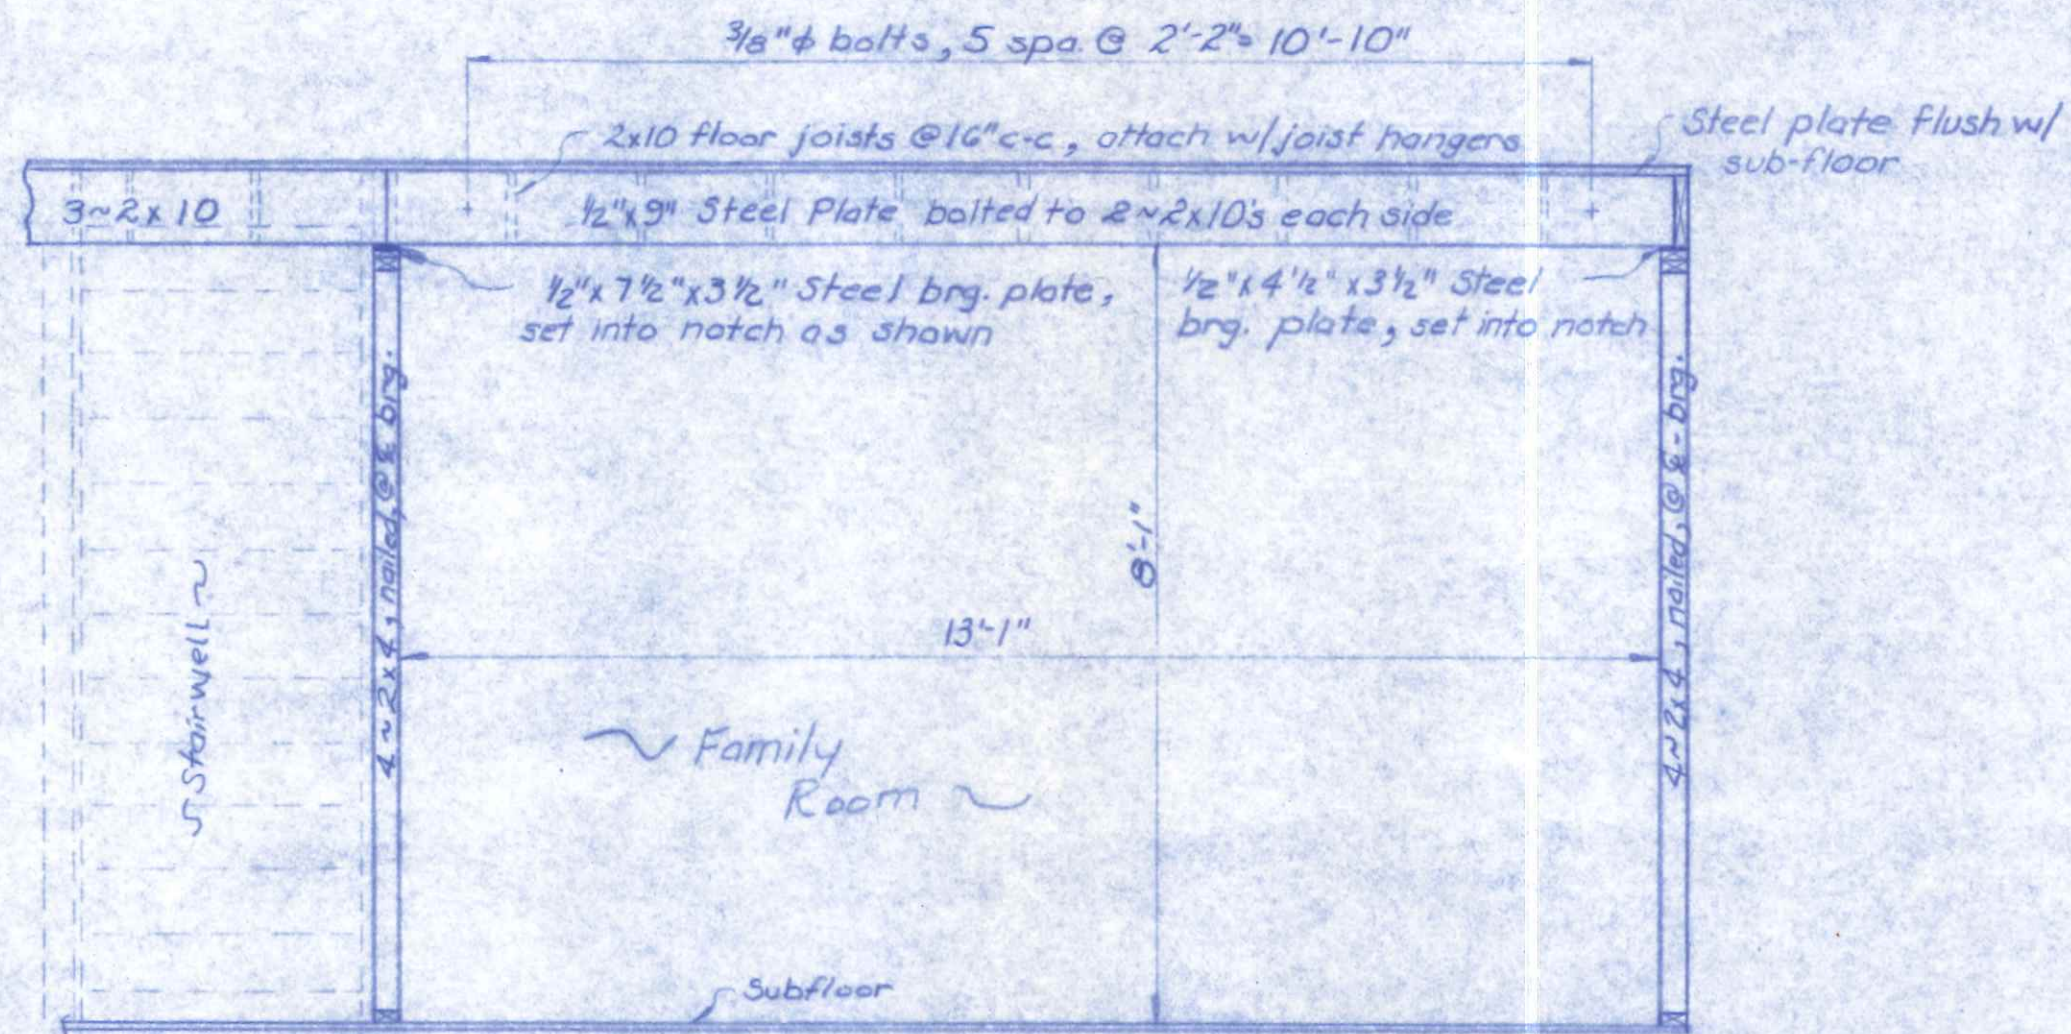 3/8"ϕ bolts, 5 spa. @ 2'-2"= 10'-10"
2x10 floor joists @ 16" c-c, attach w/joist hangers
Steel plate flush w/
sub-floor
3~2x10
1/2"x9" Steel Plate bolted to 2~2x10's each side
1/2"x 7 1/2"x3 1/2" Steel brg. plate,
set into notch as shown
1/2"x 4 1/2" x3 1/2" Steel
brg. plate, set into notch
4~2x4, nailed, @ ℄ brg.
8'-1"
4~2x4, nailed, @ ℄-brg.
~Stairwell~
13'-1"
~ Family
Room ~
Subfloor